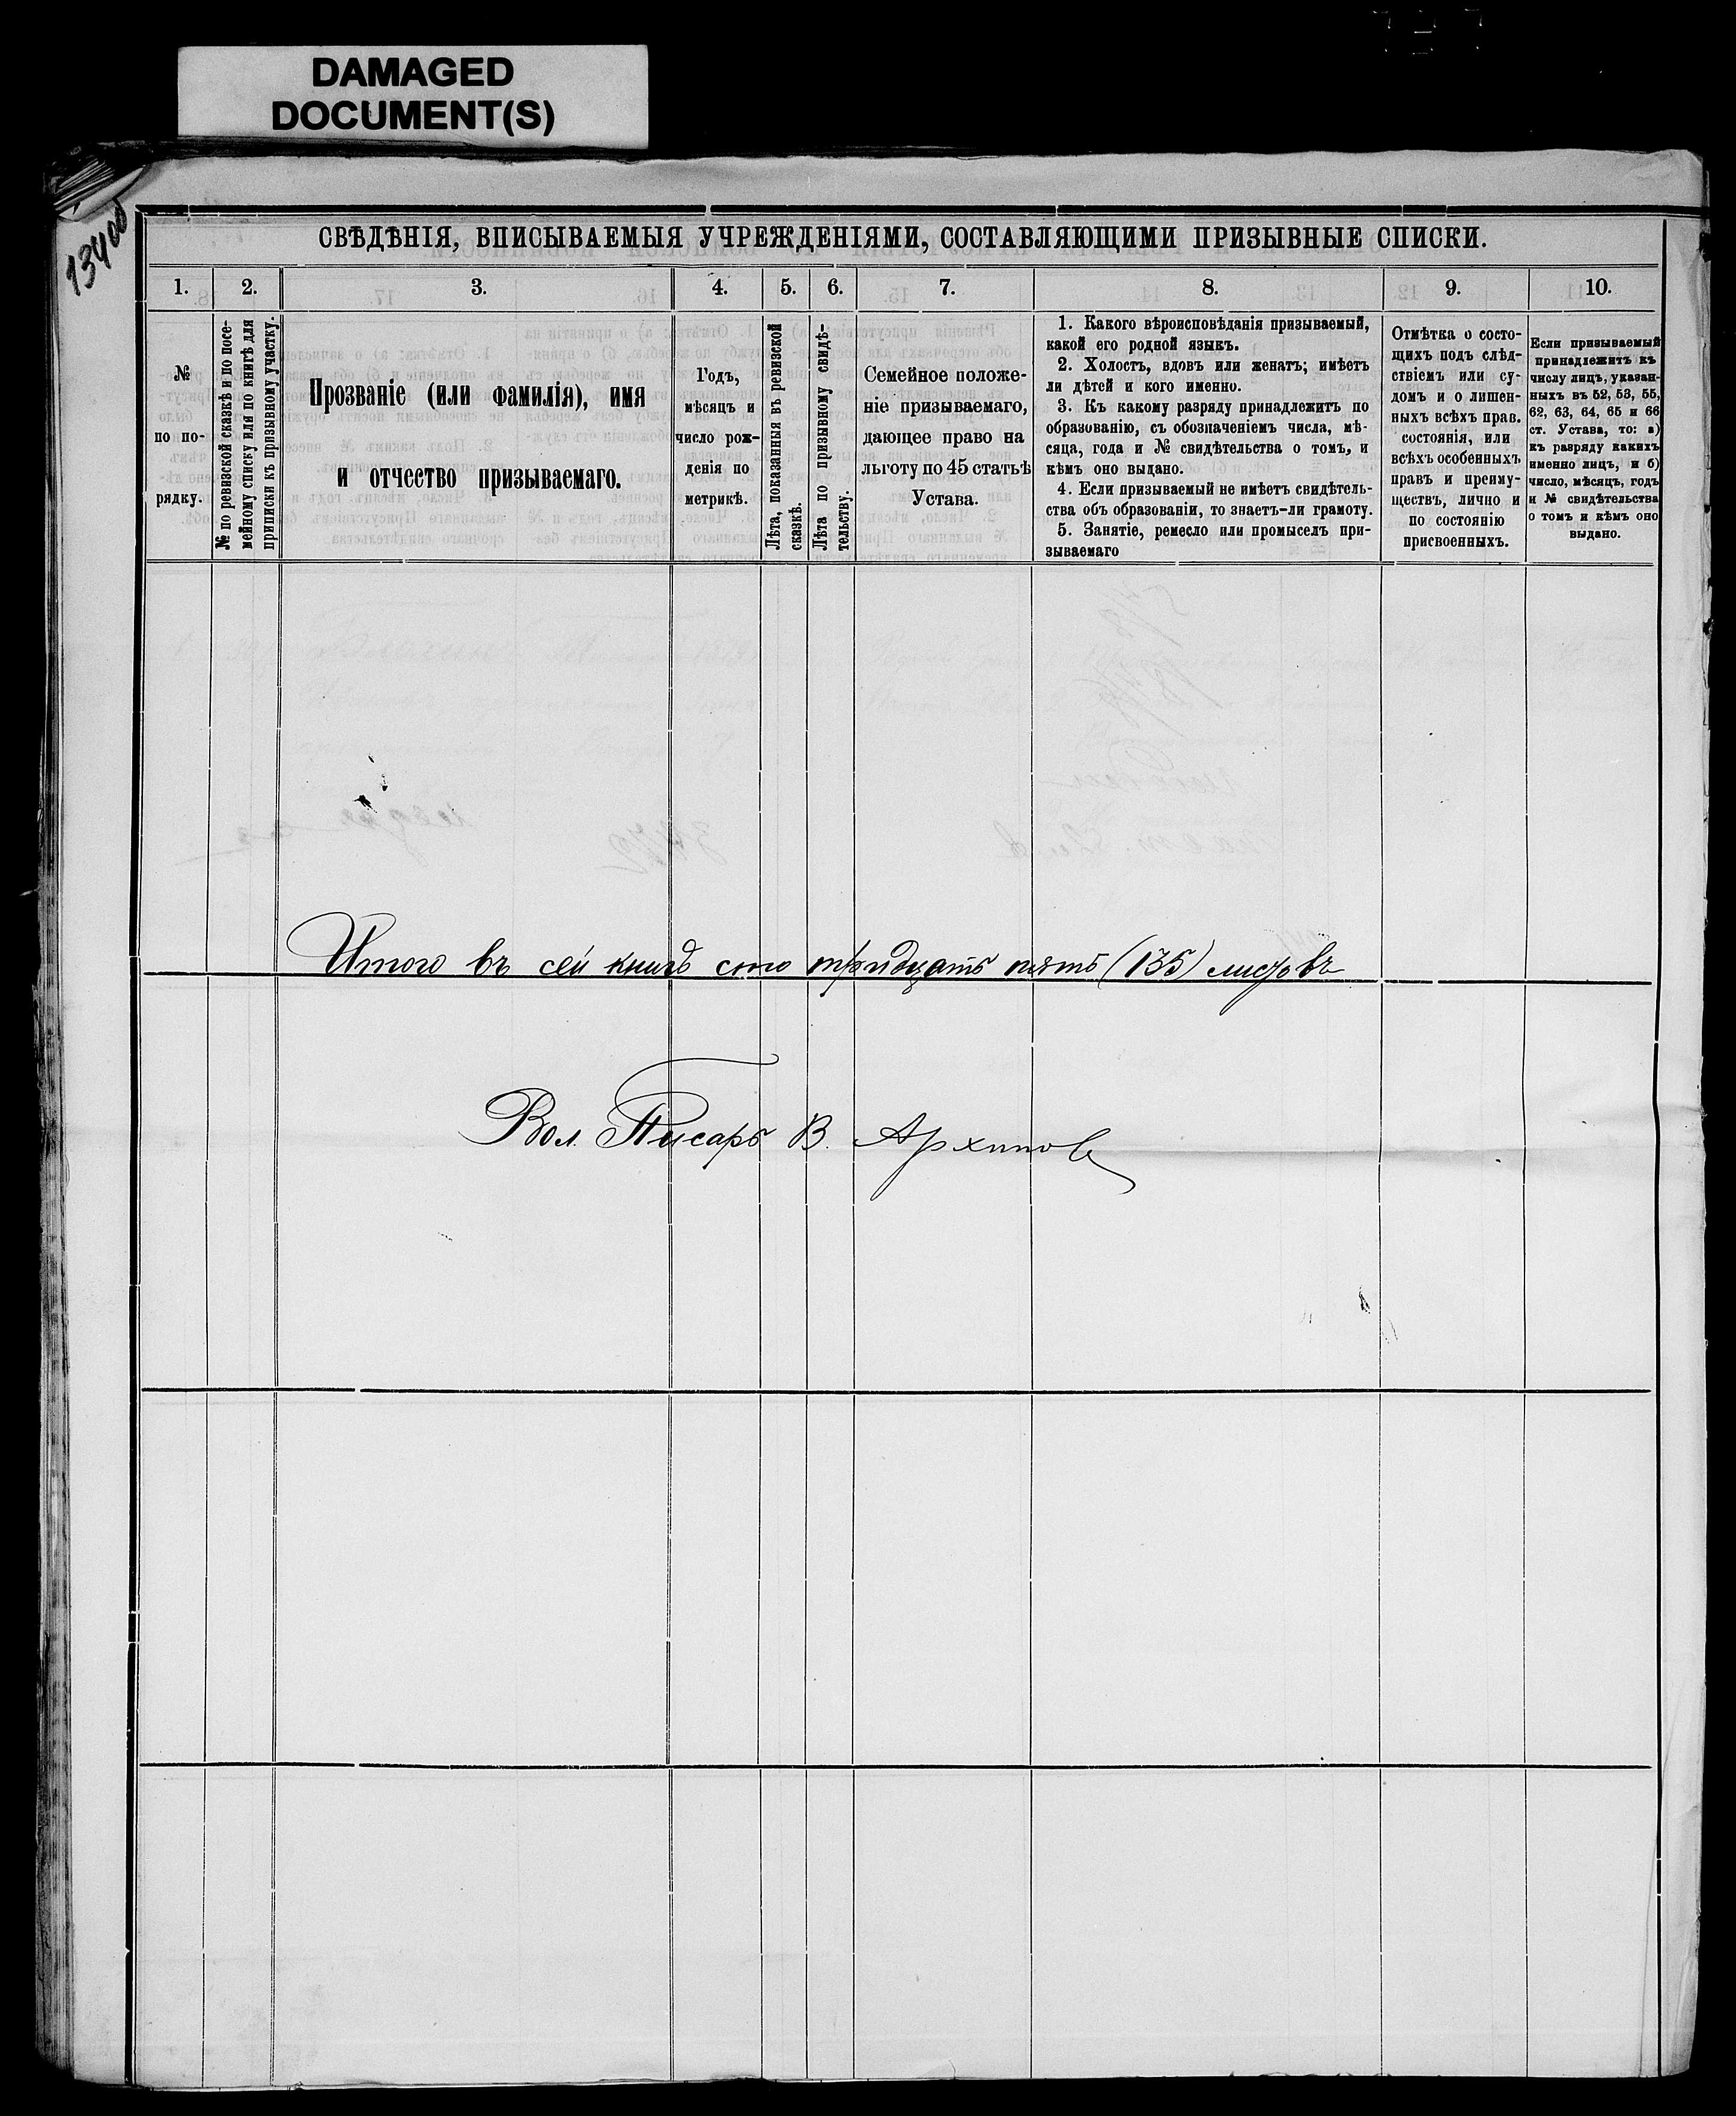 DAMAGED
DOCUMENT(S)
134об
СВѢДѢНІЯ, ВПИСЫВАЕМЫЯ УЧРЕЖДЕНІЯМИ, СОСТАВЛЯЮЩИМИ ПРИЗЫВНЫЕ СПИСКИ.
1. 2. 3. 4. 5. 6. 7. 8. 9. 10.
№
по по-
рядку.
№ по ревизской сказкѣ и по посе-
мейному списку или по книгѣ для
приписки къ призывному участку.
Прозваніе (или фамилія), имя
и отчество призываемаго.
Годъ,
мѣсяцъ и
число рож-
денія по
метрикѣ.
Лѣта, показанныя въ ревизской
сказкѣ.
Лѣта по призывному свидѣ-
тельству.
Семейное положе-
ніе призываемаго,
дающее право на
льготу по 45 статьѣ
Устава.
1. Какого вѣроисповѣданія призываемый,
какой его родной языкъ.
2. Холостъ, вдовъ или женатъ; имѣетъ
ли дѣтей и кого именно.
3. Къ какому разряду принадлежитъ по
образованію, съ обозначеніемъ числа, мѣ-
сяца, года и № свидѣтельства о томъ, и
кѣмъ оно выдано.
4. Если призываемый не имѣетъ свидѣтель-
ства объ образованіи, то знаетъ-ли грамоту.
5. Занятіе, ремесло или промыселъ при-
зываемаго
Отмѣтка о состо-
щихъ подъ слѣд-
ствіемъ или су-
домъ и о лишен-
ныхъ всѣхъ прав.
состоянія, или
всѣхъ особенныхъ
правъ и преиму-
ществъ, лично и
по состоянію
присвоенныхъ.
Если призываемый
принадлежитъ къ
числу лицъ, указан-
ныхъ въ 52, 53, 55,
62, 63, 64, 65 и 66
ст. Устава, то: а)
къ разряду какихъ
именно лицъ, и б)
число, мѣсяцъ, годъ
и № свидѣтельства
о томъ и кѣмъ оно
выдано.
Итого въ сей книгѣ сто тридцать пять (135) листовъ
Вол. Писарь В. Архипов